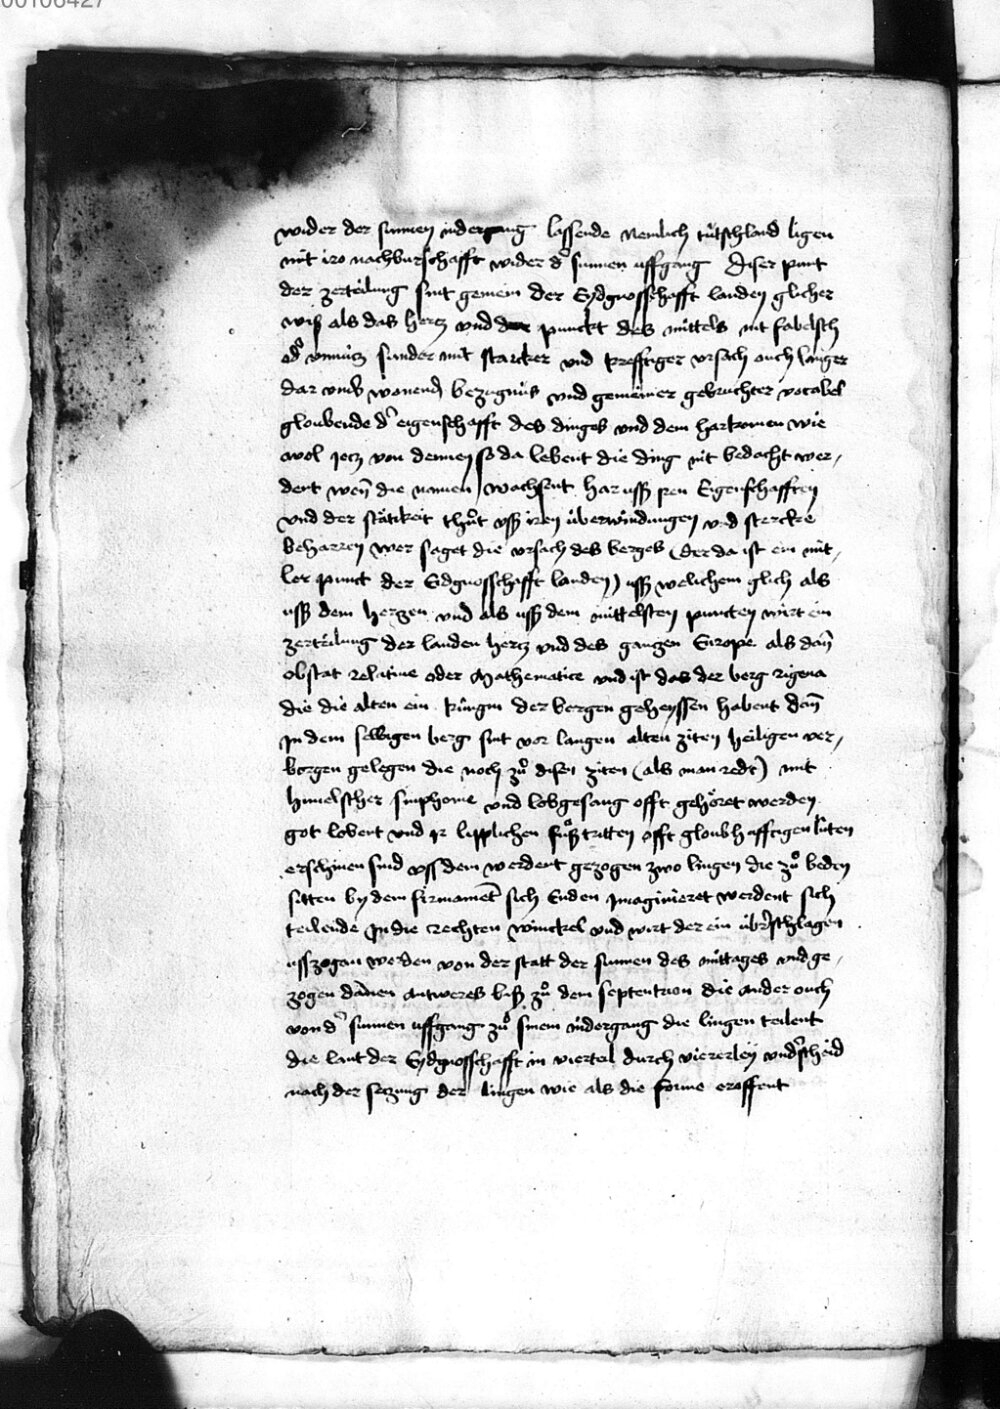 00106427
wider der sunnen nidergang lassende nemlich tütschland ligen
mit iro nachburschafft wider d' sunnen uffgang Diser punt
der zerteilung sint gemein der Eydgnosschafft landen glicher
wiß als das hertz und der punckt des mittels nit fabelsch
od' unnütz sunder mit starcker und krefftiger ursach ouch langer
dar umb wonend bezugnüs und gemeiner gebruchter vocabel
gloubende d' eigenschafft des dinges und dem harkomen wie
wol jetz von dennen so da lebent die ding nit bedacht wer,
dent wen̄ die namen wachsent har uss iren Eigenschafften
und der stätikeit thůt uss iren überwindungen und stercke
beharren wer saget die ursach des berges (der da ist ein mit,
ler punct der Eidgnosschafft landen) uss welichem glich als
uss dem hertzen und als uss dem mittelsten puncten wirt ein
zerteilung der landen hertz und des gantzen Europe als dan̄
obstat relative oder Mathematice und ist das der berg rigena
die die alten ein küngin der bergen geheyssen habent dan̄
In dem selbigen berg sint vor langen alten ziten heiligen ver,
borgen gelegen die noch zů disen ziten (als man redt) mit
himelscher simphonie und lobgesang offt gehöret werden
got lobent und ir lipplichen fůßtritten offt gloubhafftigen lüten
erschinen sind uss dem werdent gezogen zwo lingen die zů beden
sitten by dem firmamēt sich Enden Imaginieret werdent sich
teilende In die rechten winckel und wirt der ein überschlagen
usszogen werden von der statt der sunnen des mittages und ge,
zogen dān̄en antweres biß zů dem septentrion die ander ouch
von d' sunnen uffgang zů sinem nidergang die lingen teilent
die lant der Eydgnosschafft in viertal durch viererley und'scheid
nach der setzung der lingen wie als die forme eroffent